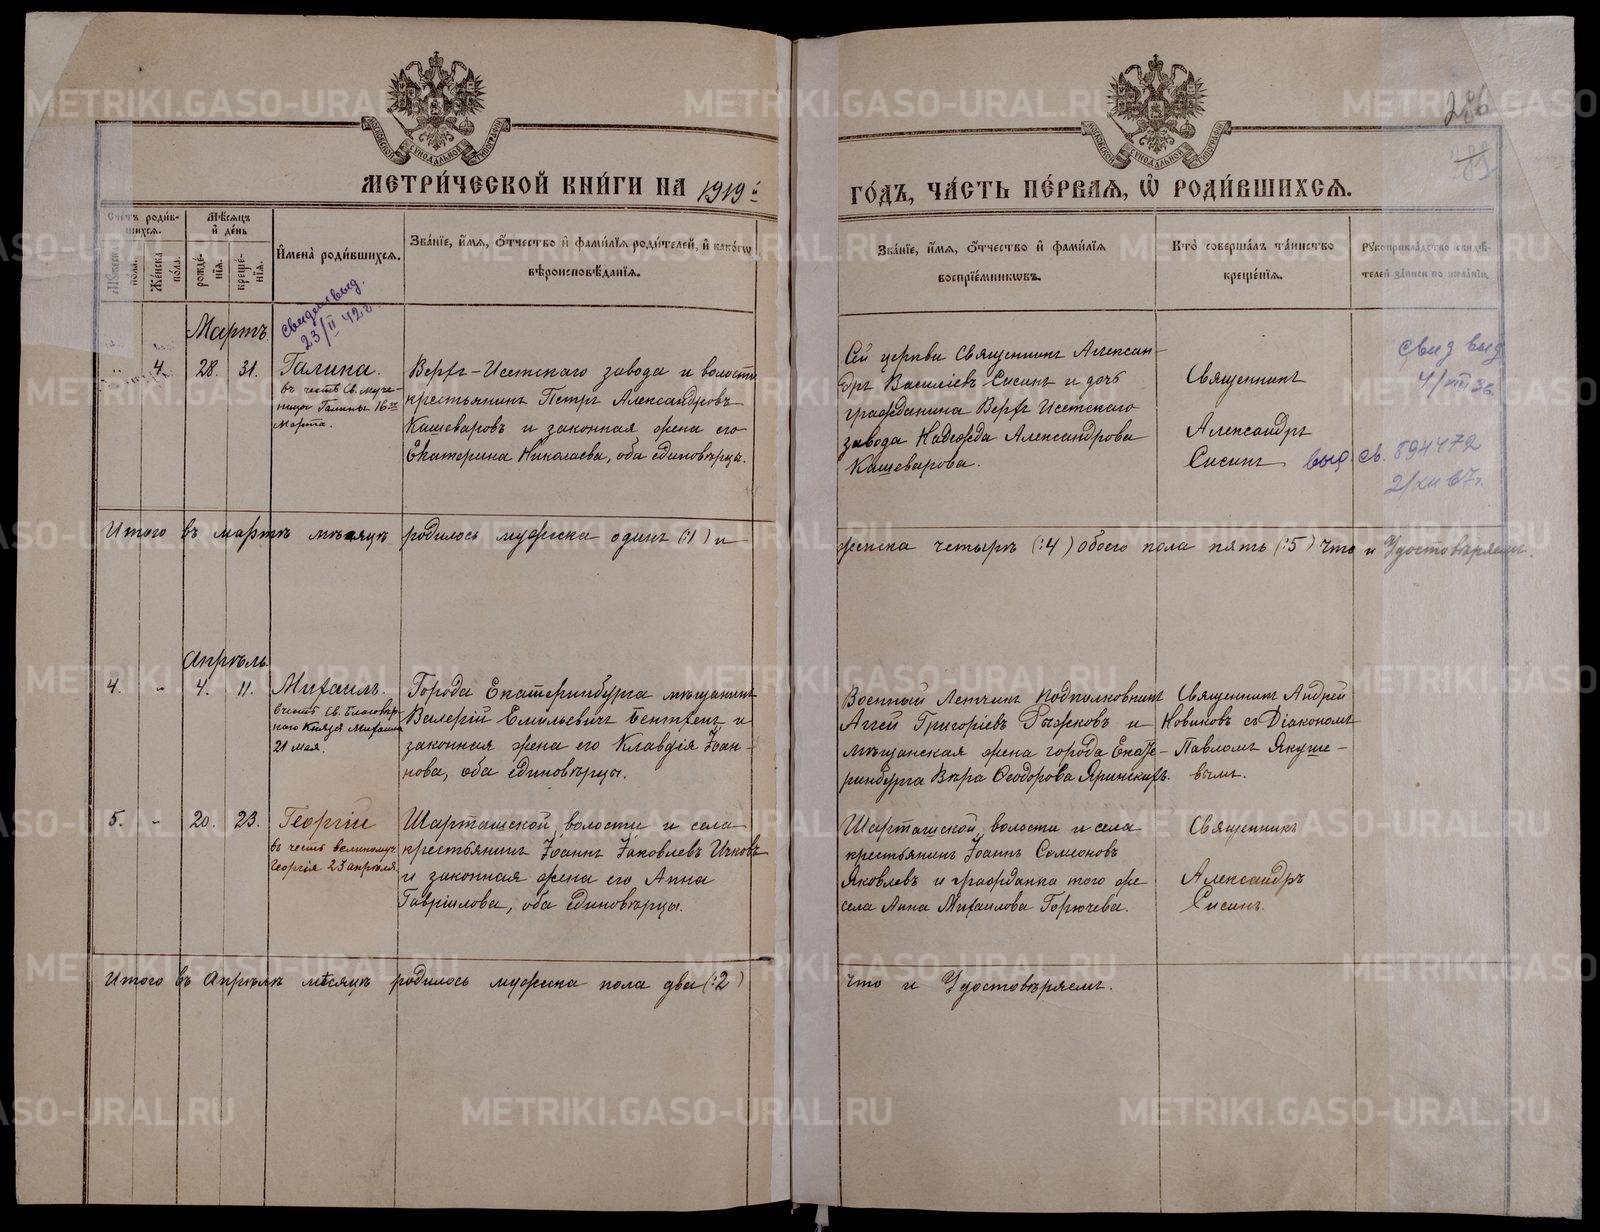 METRIKI.GASO-URAL.RU
286
МОСКОВСКОЙ СѴНОДАЛЬНОЙ ТИПОГРАФІИ
МОСКОВСКОЙ СѴНОДАЛЬНОЙ ТИПОГРАФІИ
МЕТРИ́ЧЕСКОЙ КНИ́ГИ НА 1919й
ГО́ДЪ, ЧА́СТЬ ПЕ́РВАЯ, Ѽ РОДИ́ВШИХСЯ.
Счетъ роди́вшихся.
Мѣ́сяцъ и҆ де́нь
Мꙋжеска пола.
Же́нска по́ла.
рожде́нїя.
креще́нїя.
И҆мена̀ роди́вшихся.
Зва́нїе, и҆́мя, ѻ҆́тчество и҆ фами́лїя роди́телей, и҆ како́гѡ
вѣроисповѣ́данїя.
Зва́нїе, и҆́мя, ѻ҆́тчество и҆ фами́лїя
воспрїе́мникѡвъ.
Кто̀ соверша́лъ та́инство
креще́нїя.
Рꙋкоприкла́дство свидѣ́-
телей за́писи по жела́нїю.
Мартъ
свидет. выд.
23/II 42 г.
4. 28. 31. Галина.
въ честь Св. муче-
ницы Галины 16го
марта.
Верхъ-Исетскаго завода и волости
крестьянинъ Петръ Александровъ
Кашеваровъ и законная жена его
Екатерина Николаева, оба единовѣрцы.
Сей церкви Священникъ Алексан-
дръ Василіевъ Сисинъ и дочь
гражданина Верхъ Исетскаго
завода Надежда Александрова
Кашеварова.
Священникъ
Александръ
Сисинъ
свид выд
4/VIII 36
выд. св. 894472
2/XII 67 г.
Итого въ мартѣ мѣсяцѣ родилось мужска одинъ (:1) и
женска четырѣ (:4) обоего пола пять (:5) Что и Удостовѣряемъ.
Апрѣль
4. - 4. 11. Михаилъ.
въ честь Св. Благовѣр-
наго Князя Михаила
21 мая.
Города Екатеринбурга мѣщанинъ
Валерій Емильевичъ Бентхенъ и
законная жена его Клавдія Іоан-
нова, оба единовѣрцы.
Военный Летчикъ Подполковникъ
Аггей Григоріевъ Рыжковъ и
мѣщанская жена города Екате-
ринбурга Вѣра Ѳеодорова Яринскихъ.
Священникъ Андрей
Новиковъ съ Діакономъ
Павломъ Якуше-
вымъ.
5. - 20. 23. Георгій
въ честь великомуч.
Георгія 23 апрѣля.
Шарташской волости и села
крестьянинъ Іоаннъ Іаковлевъ Ичковъ
и законная жена его Анна
Гавріилова, оба единовѣрцы.
Шарташской волости и села
крестьянинъ Іоаннъ Симеоновъ
Яковлевъ и гражданка того же
села Анна Михаилова Горючева.
Священникъ
Александръ
Сисинъ.
Итого въ Апрѣлѣ мѣсяцѣ родилось мужска пола два (:2)
Что и Удостовѣряемъ.